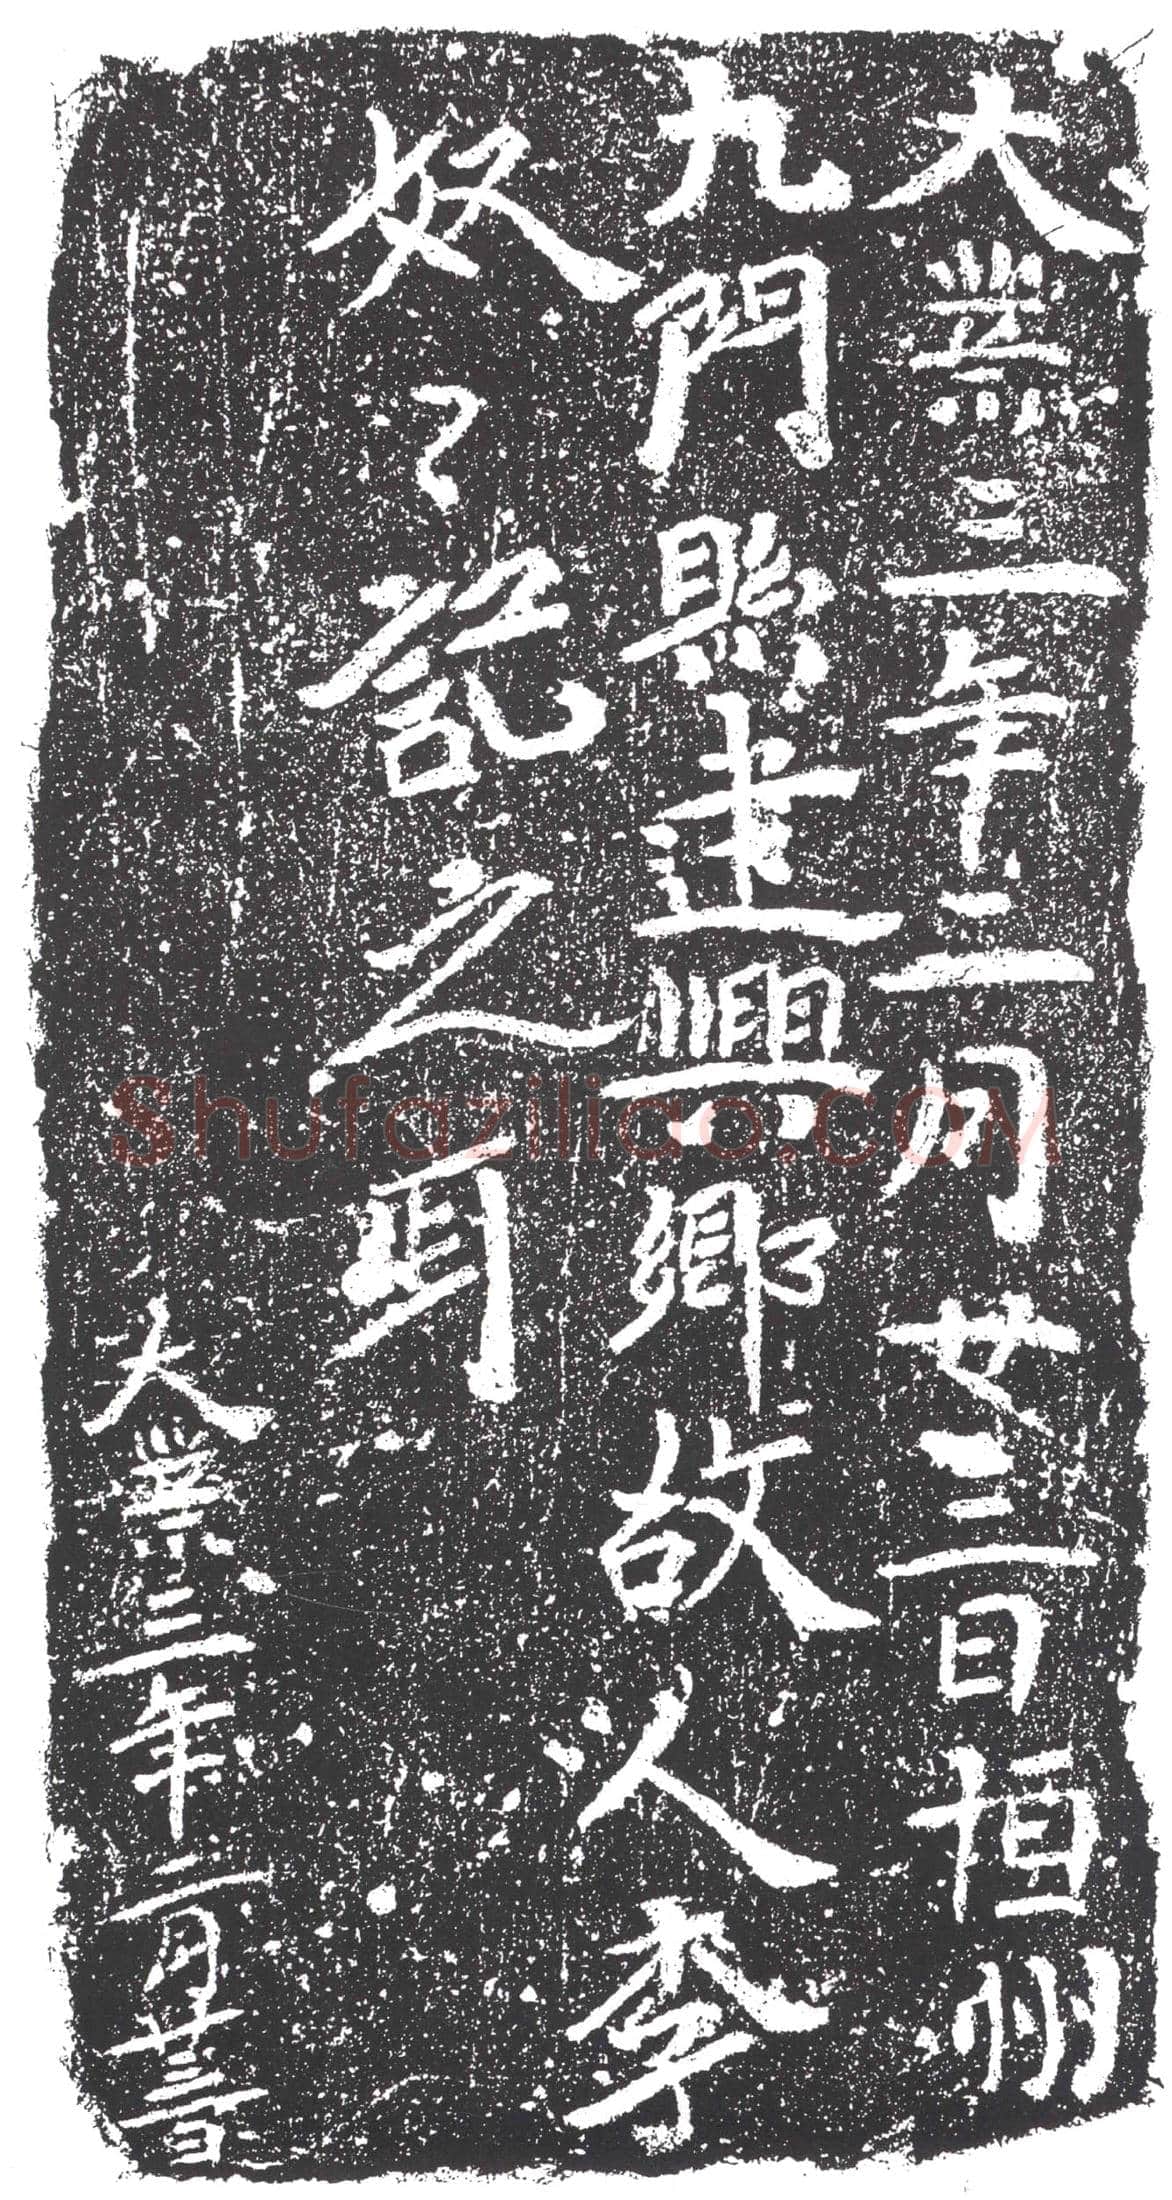 大業三年二月廿三日恒州
九門縣建興鄉故人李
奴々記之耳
大業三年二月廿三日
Shufaziliao.COM